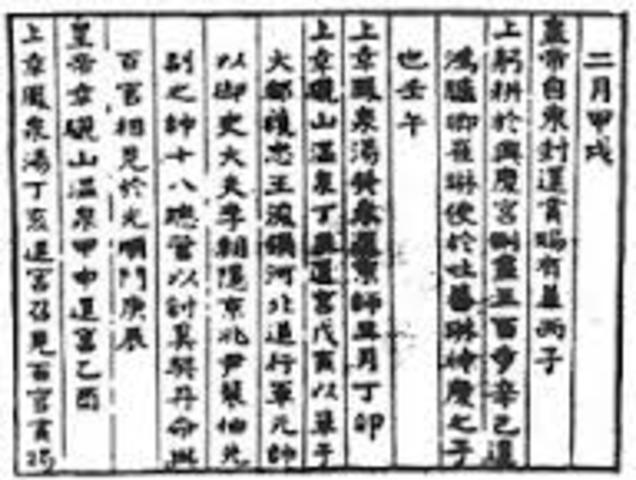 二月甲戌
皇帝自東封還賞賜有差丙子
上躬耕於興慶宮側盡三百步辛巳還
鴻臚卿崔琳使於吐蕃琳仲慶之子
也壬午
上幸鳳泉湯癸未還京師月丁卯
上幸驪山溫泉丁丑還宮戊寅以單于
大都護忠王浚領河北道行軍元帥
以御史大夫李朝隱京兆尹裴伷先
副之帥十八總管以討奚契丹命與
百官相見於光順門庚辰
皇帝幸驪山溫泉甲申還宮乙酉
上幸鳳泉湯丁亥還宮召見百官賞賜